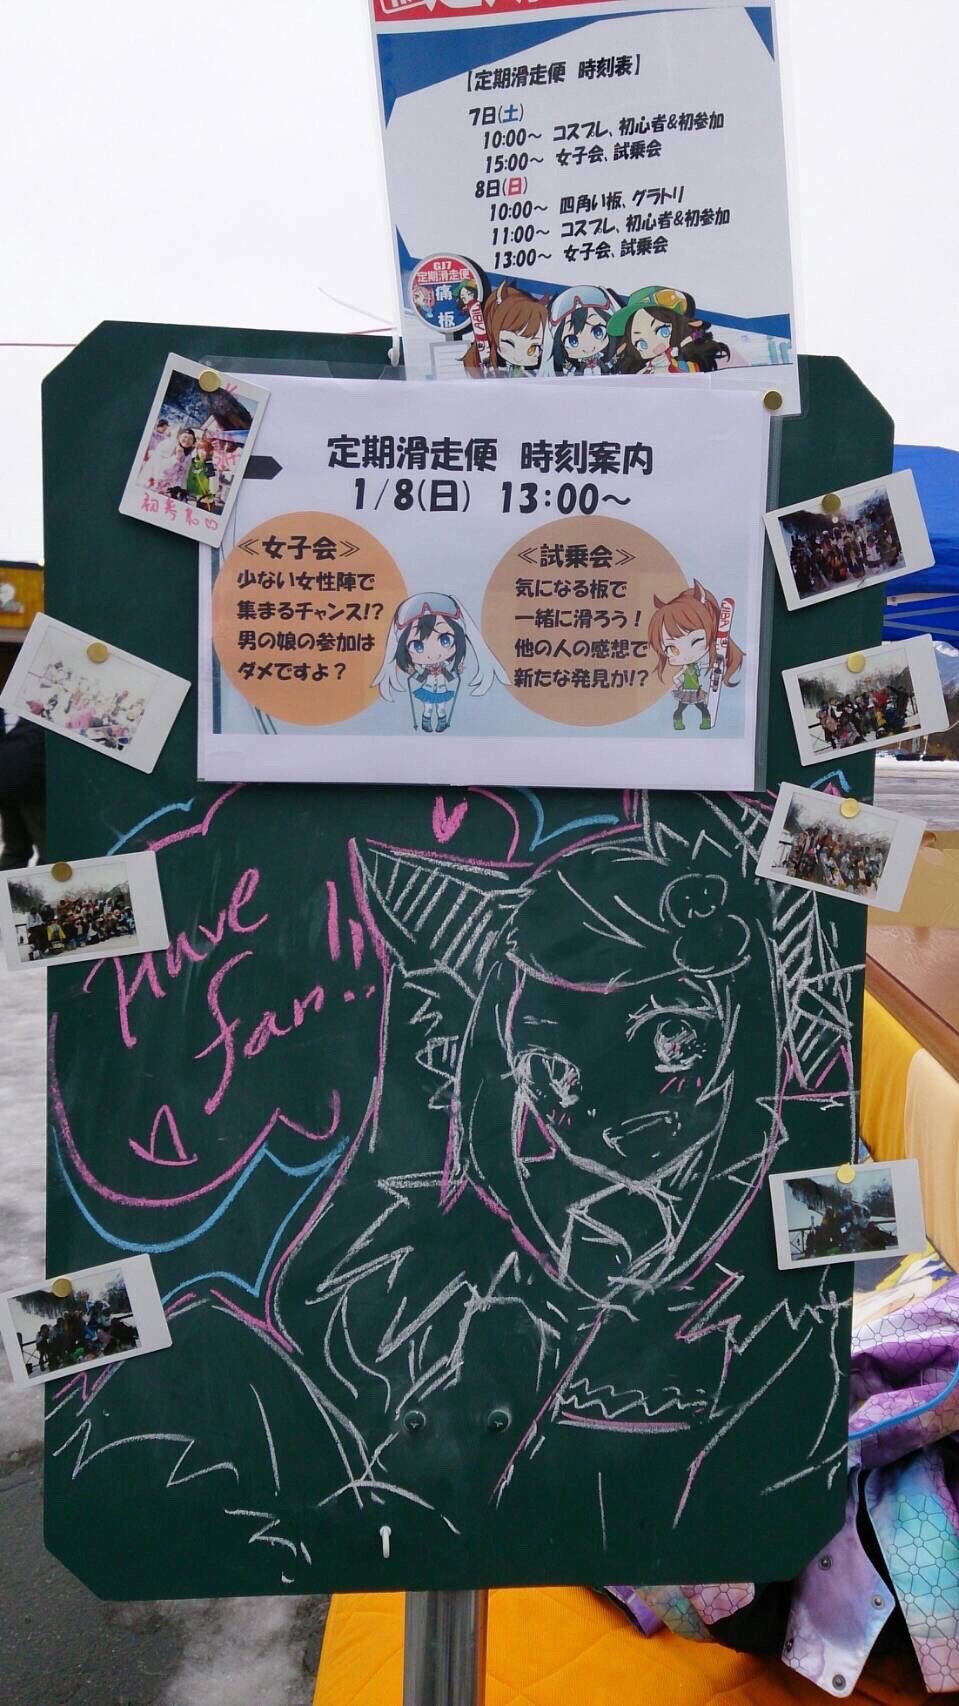 【定期滑走便 時刻表】
7日(土)
10:00〜 コスプレ、初心者&初参加
15:00〜 女子会、試乗会
8日(日)
10:00〜 四角い板、グラトリ
11:00〜 コスプレ、初心者&初参加
13:00〜 女子会、試乗会
GJ7
定期滑走便
痛
板
定期滑走便 時刻案内
1/8(日) 13:00〜
≪女子会≫
少ない女性陣で
集まるチャンス!?
男の娘の参加は
ダメですよ?
≪試乗会≫
気になる板で
一緒に滑ろう!
他の人の感想で
新たな発見が!?
Have
fan!!